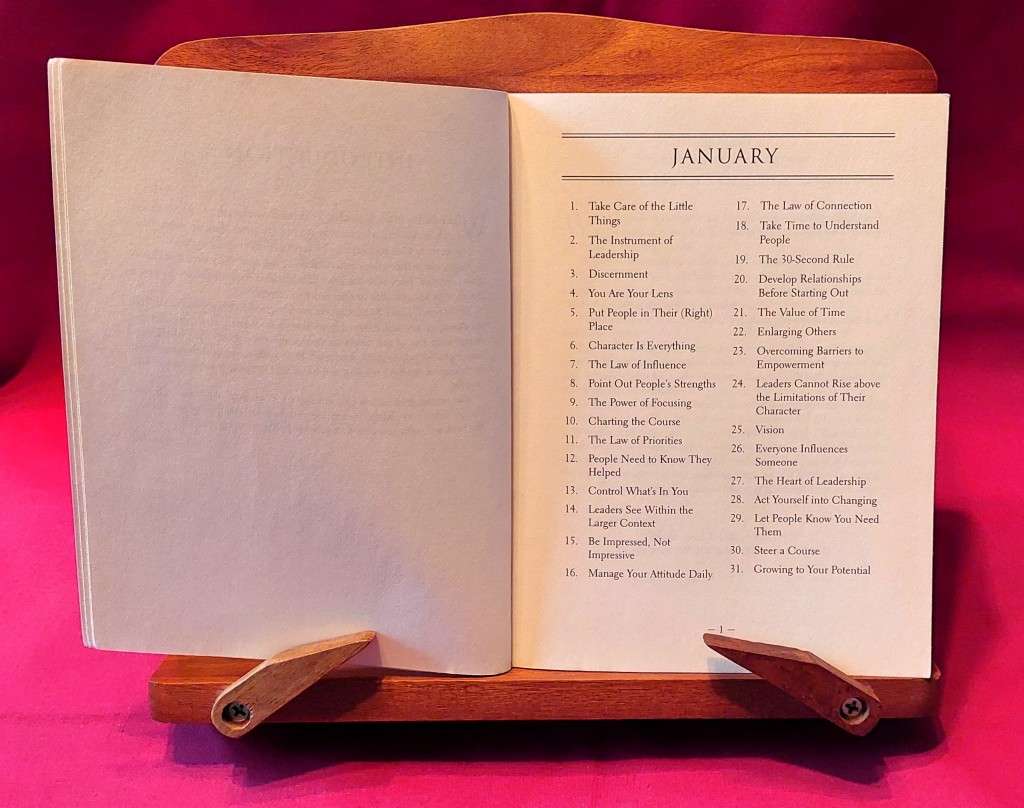 JANUARY
1. Take Care of the Little
Things
2. The Instrument of
Leadership
3. Discernment
4. You Are Your Lens
5. Put People in Their (Right)
Place
6. Character Is Everything
7. The Law of Influence
8. Point Out People's Strengths
9. The Power of Focusing
10. Charting the Course
11. The Law of Priorities
12. People Need to Know They
Helped
13. Control What's In You
14. Leaders See Within the
Larger Context
15. Be Impressed, Not
Impressive
16. Manage Your Attitude Daily
17. The Law of Connection
18. Take Time to Understand
People
19. The 30-Second Rule
20. Develop Relationships
Before Starting Out
21. The Value of Time
22. Enlarging Others
23. Overcoming Barriers to
Empowerment
24. Leaders Cannot Rise above
the Limitations of Their
Character
25. Vision
26. Everyone Influences
Someone
27. The Heart of Leadership
28. Act Yourself into Changing
29. Let People Know You Need
Them
30. Steer a Course
31. Growing to Your Potential
— 1 —